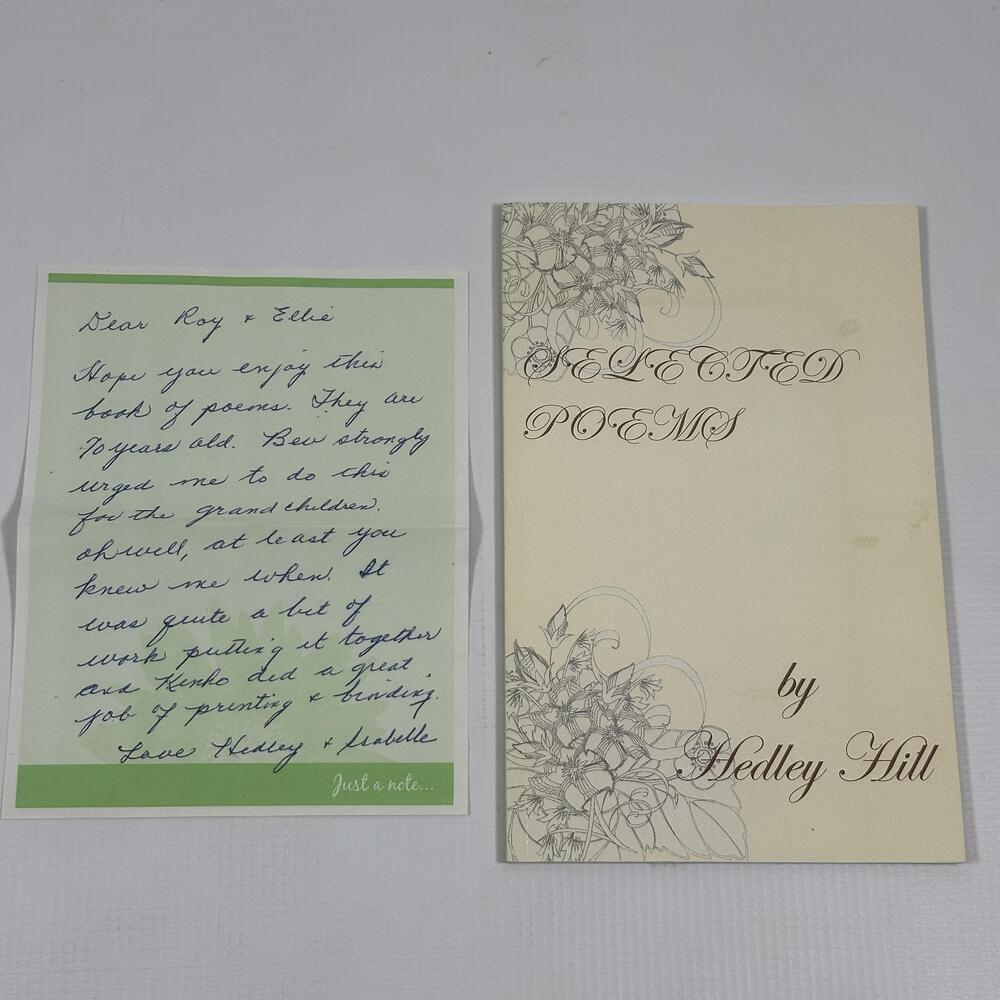 Dear Roy + Ellie
Hope you enjoy this
book of poems. They are
70 years old. Bev strongly
urged me to do this
for the grandchildren.
oh well, at least you
knew me when. It
was quite a bit of
work putting it together
and Kinko did a great
job of printing + binding.
Love Hedley + Isabelle
Just a note...
SELECTED
POEMS
by
Hedley Hill